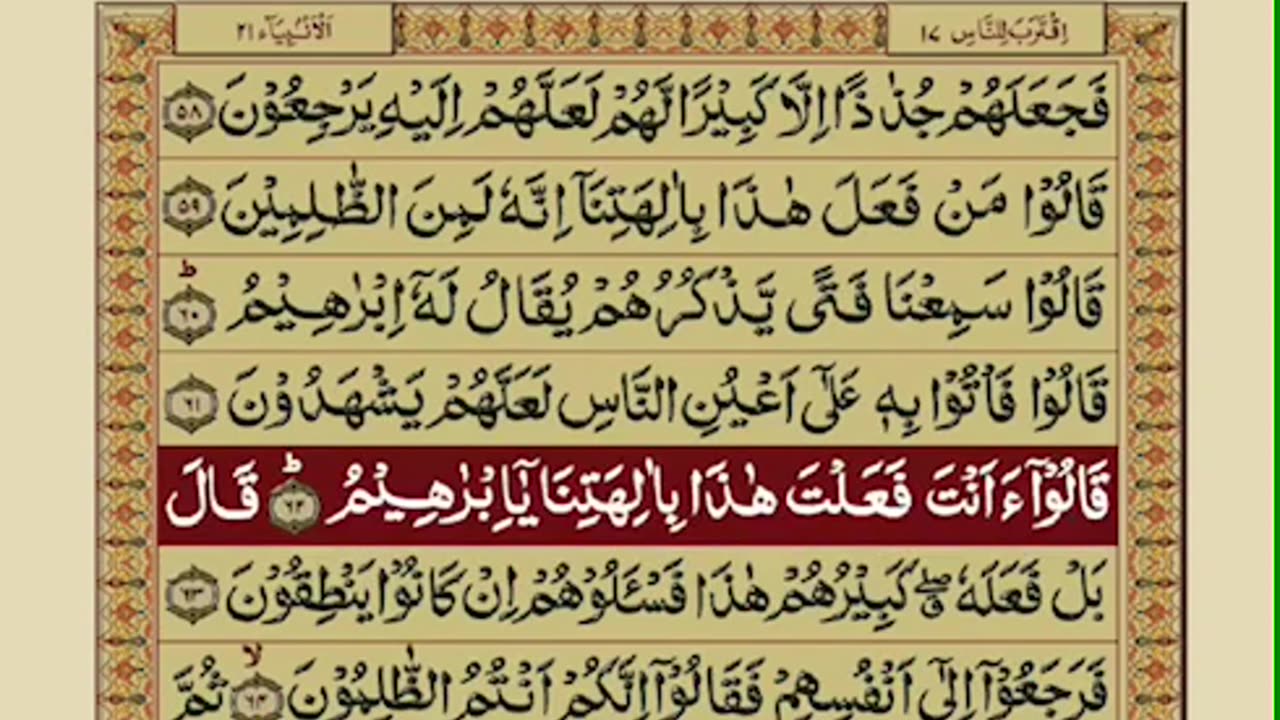 اِقْتَرَبَ لِلنَّاسِ ١٧
اَلْاَنْۢبِيَآء ٢١
فَجَعَلَهُمْ جُذٰذًا اِلَّا كَبِيْرًا لَّهُمْ لَعَلَّهُمْ اِلَيْهِ يَرْجِعُوْنَ ٥٨
قَالُوْا مَنْ فَعَلَ هٰذَا بِاٰلِهَتِنَاۤ اِنَّهٗ لَمِنَ الظّٰلِمِيْنَ ٥٩
قَالُوْا سَمِعْنَا فَتًى يَّذْكُرُهُمْ يُقَالُ لَهٗۤ اِبْرٰهِيْمُ ؕ ٦٠
قَالُوْا فَاْتُوْا بِهٖ عَلٰۤى اَعْيُنِ النَّاسِ لَعَلَّهُمْ يَشْهَدُوْنَ ٦١
قَالُوْۤا ءَاَنْتَ فَعَلْتَ هٰذَا بِاٰلِهَتِنَا يٰۤاِبْرٰهِيْمُ ؕ ٦٢ قَالَ
بَلْ فَعَلَهٗ ۖۗ كَبِيْرُهُمْ هٰذَا فَسْـَٔلُوْهُمْ اِنْ كَانُوْا يَنْطِقُوْنَ ٦٣
فَرَجَعُوْۤا اِلٰۤى اَنْفُسِهِمْ فَقَالُوْۤا اِنَّكُمْ اَنْتُمُ الظّٰلِمُوْنَ ۙ ٦٤ ثُمَّ